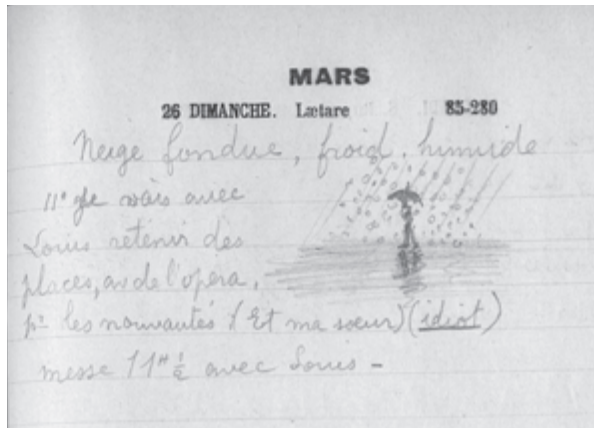 MARS
26 DIMANCHE. Lætare 85-280
Neige fondue, froid. humide
11h je vais avec
Louis retenir des
places, av de l'opera,
pr les nouvautés (Et ma sœur) (idiot)
messe 11H ½ avec Louis -